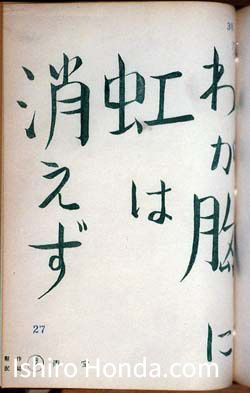 わが胸に
虹は
消えず
27
Ishiro Honda.com